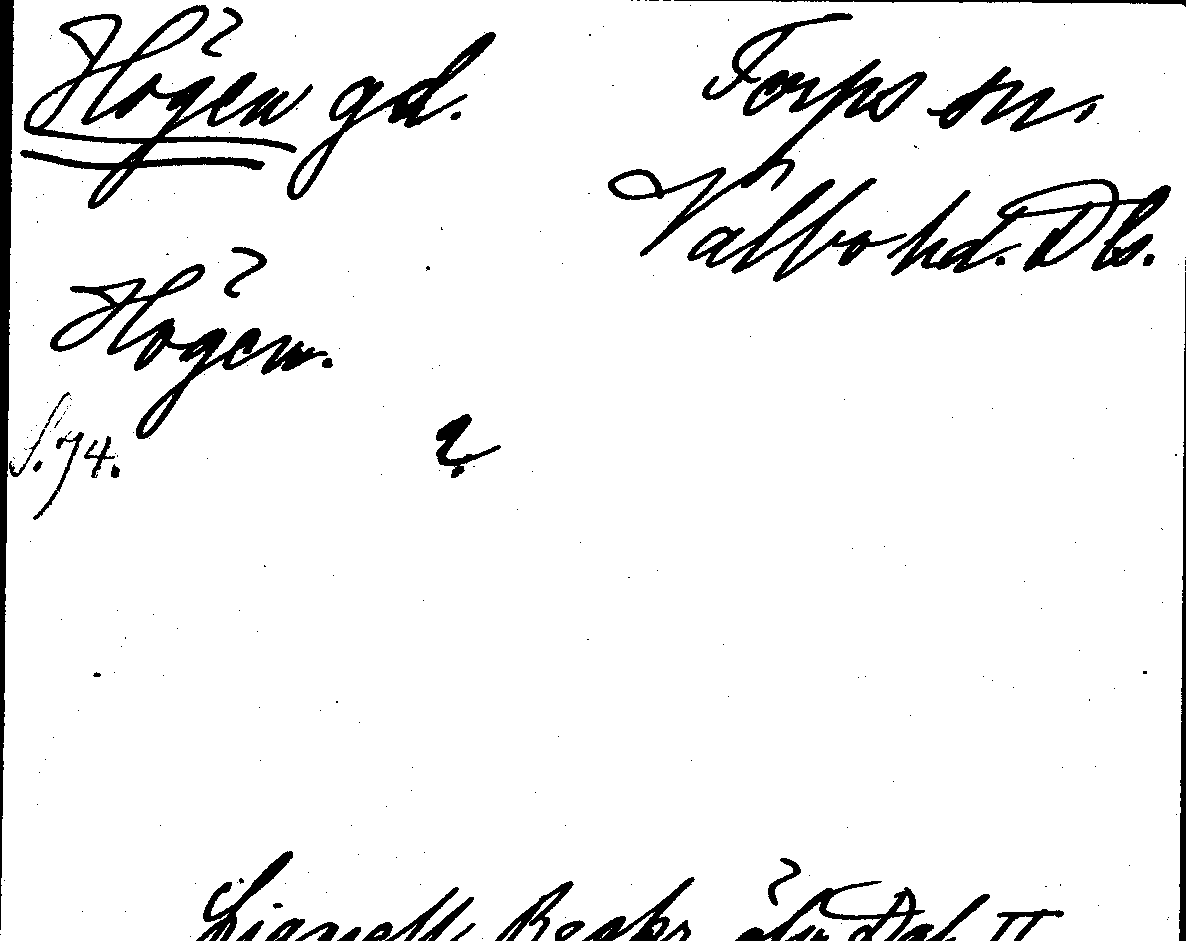 Högen gd.
Torps sn.
Valbo hd. Dls.
Högen.
S. 74.
?
Lignell, Beskr. öfv. Dal II